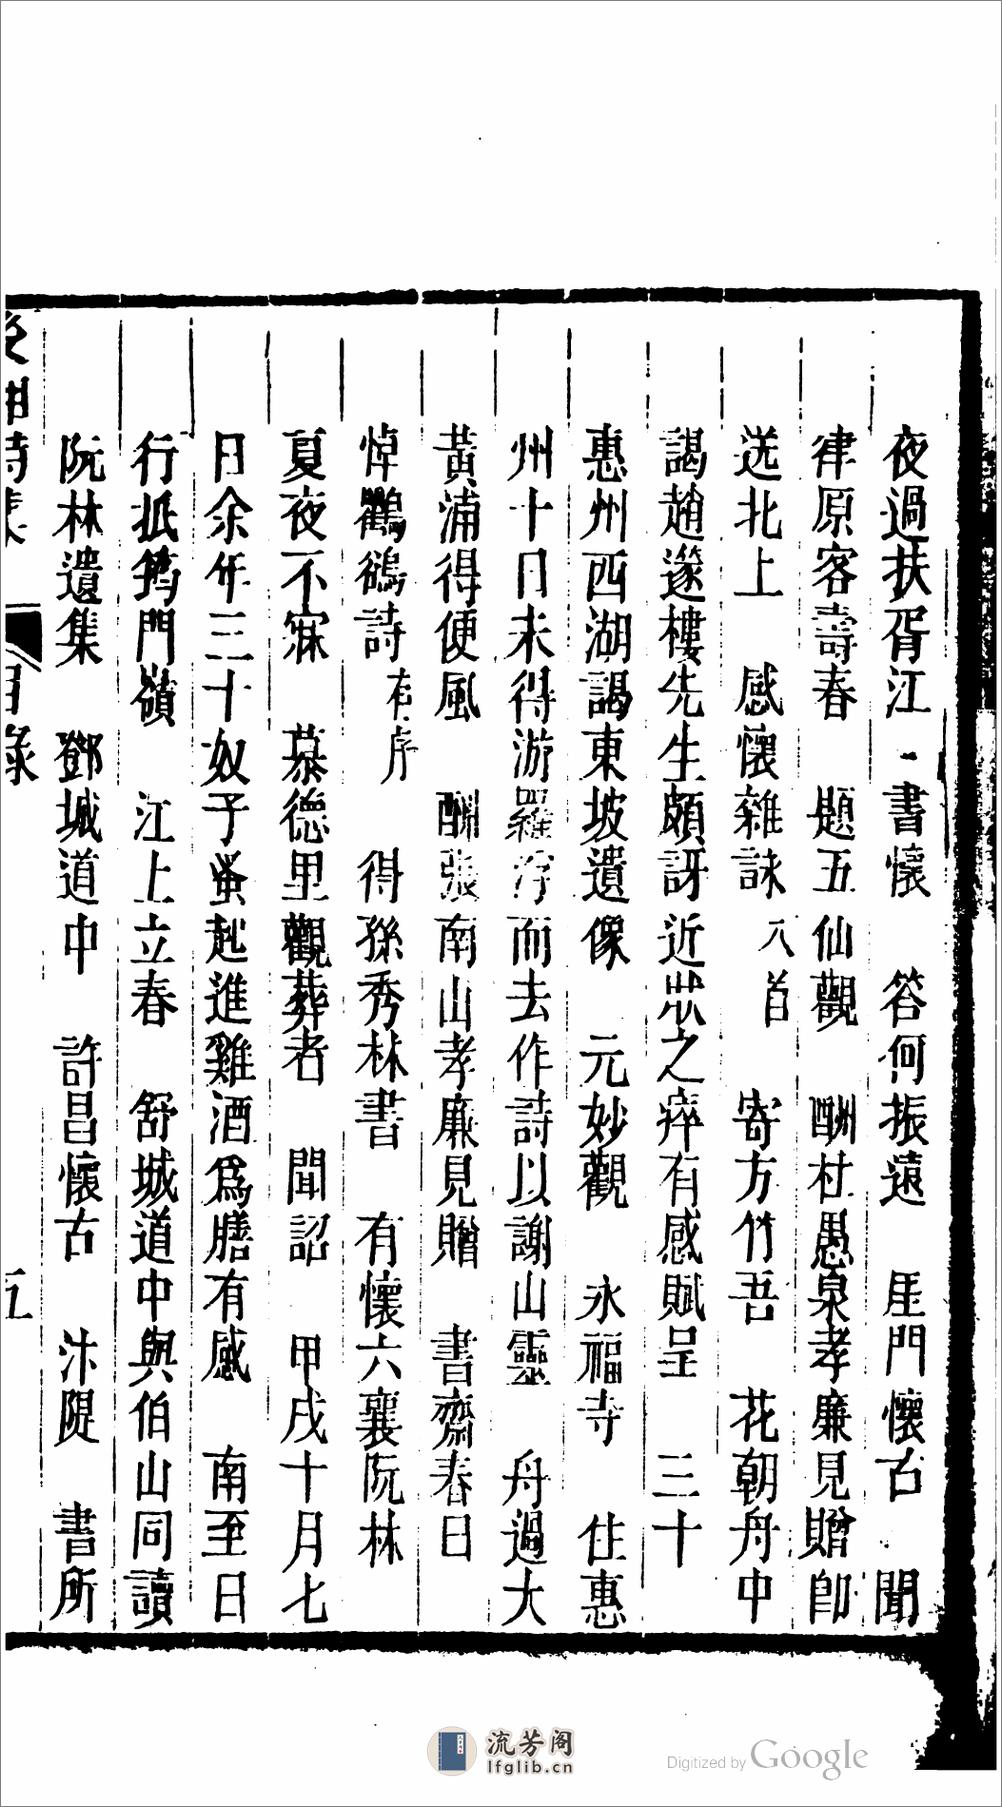 夜過扶胥江　書懷　答何振遠　厓門懷古　聞
律原客壽春　題五仙觀　酬杜愚泉孝廉見贈卽
送北上　感懷雜詠八首　寄方竹吾　花朝舟中
謁趙邃樓先生頗訝近狀之瘁有感賦呈　三十
惠州西湖謁東坡遺像　元妙觀　永福寺　住惠
州十日未得游羅浮而去作詩以謝山靈　舟過大
黃浦得便風　酬張南山孝廉見贈　書齋春日
悼鸜鵒詩有序　得孫秀林書　有懷六襄阮林
夏夜不寐　慕德里觀葬者　聞認　甲戌十月七
日余年三十奴子蚤起進雞酒爲膳有感　南至日
行抵筠門嶺　江上立春　舒城道中與伯山同讀
阮林遺集　鄧城道中　許昌懷古　汴隄　書所
後湘詩集　目錄　五
流芳阁
lfglib.cn
Digitized by Google